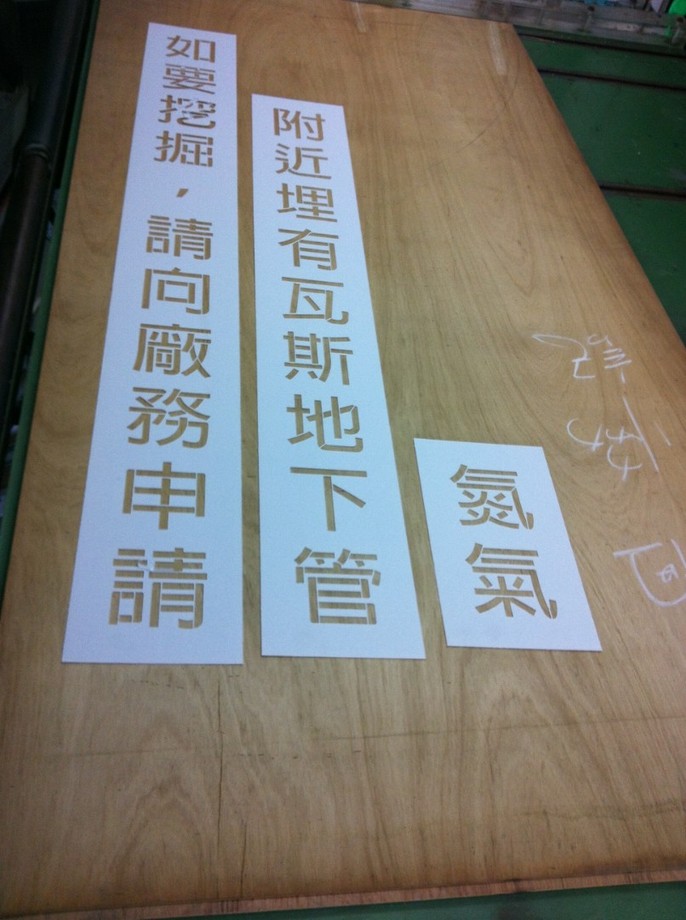 氮氣
附近埋有瓦斯地下管
如要挖掘，請向廠務申請